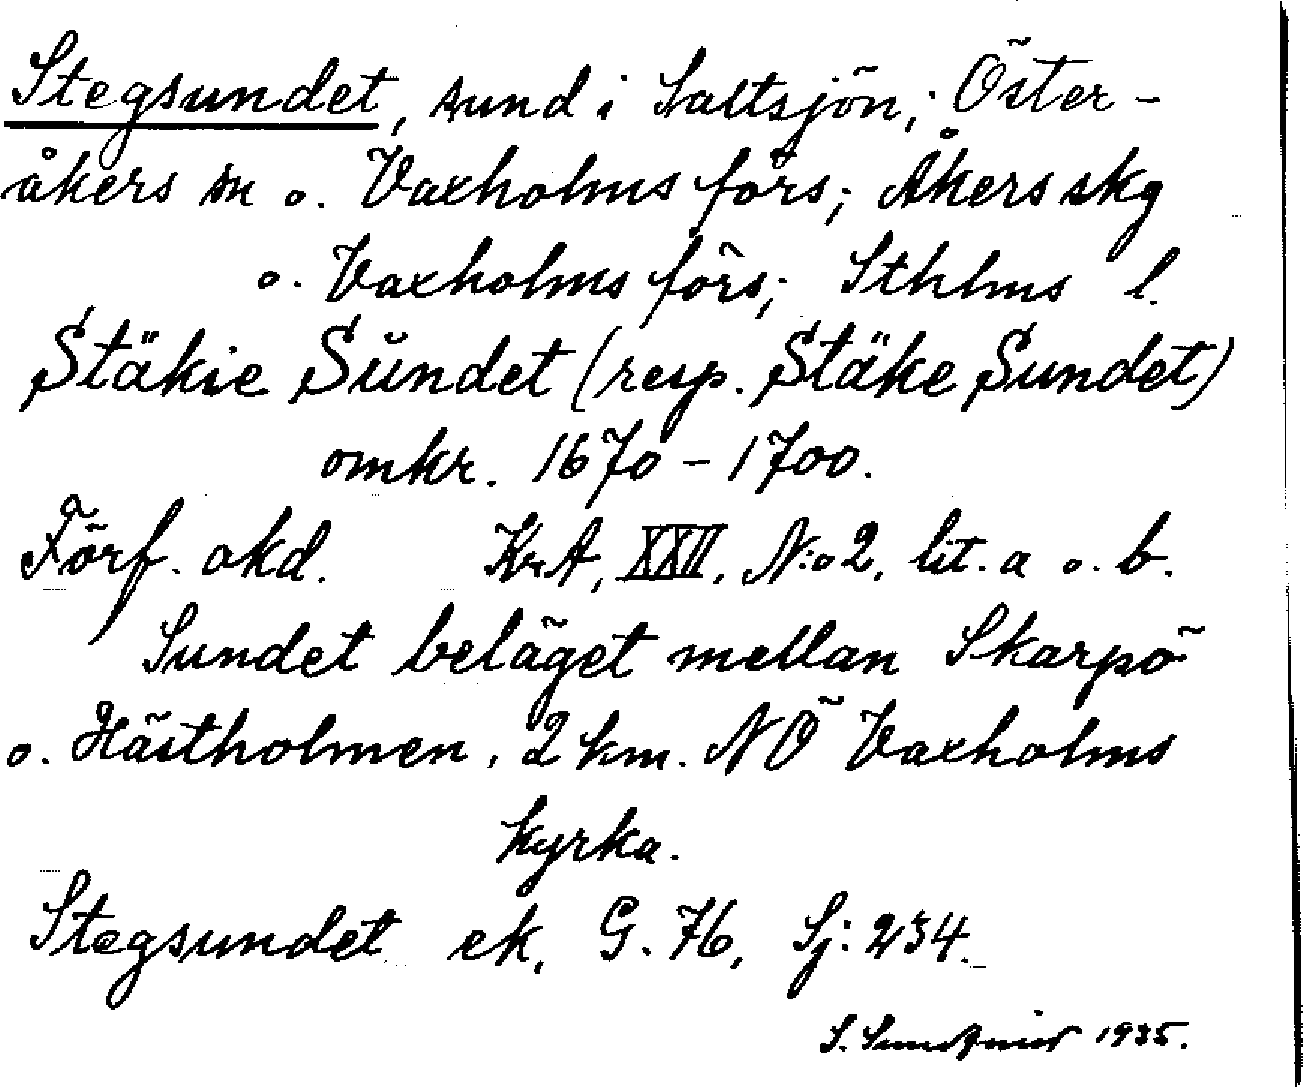 Stegsundet, sund i Saltsjön; Öster-
åkers sn o. Vaxholms förs; Åkers skg
o. Vaxholms förs; Sthlms l.
Stäkie Sŭndet (resp. Stäke Sundet)
omkr. 1670-1700.
Förf. okd. KrA, XXII, N:o 2, lit. a o. b.
Sundet beläget mellan Skarpö
o. Hästholmen, 2 km. NÖ Vaxholms
kyrka.
Stegsundet ek, G. 76, Sj: 234.
S. 1935.